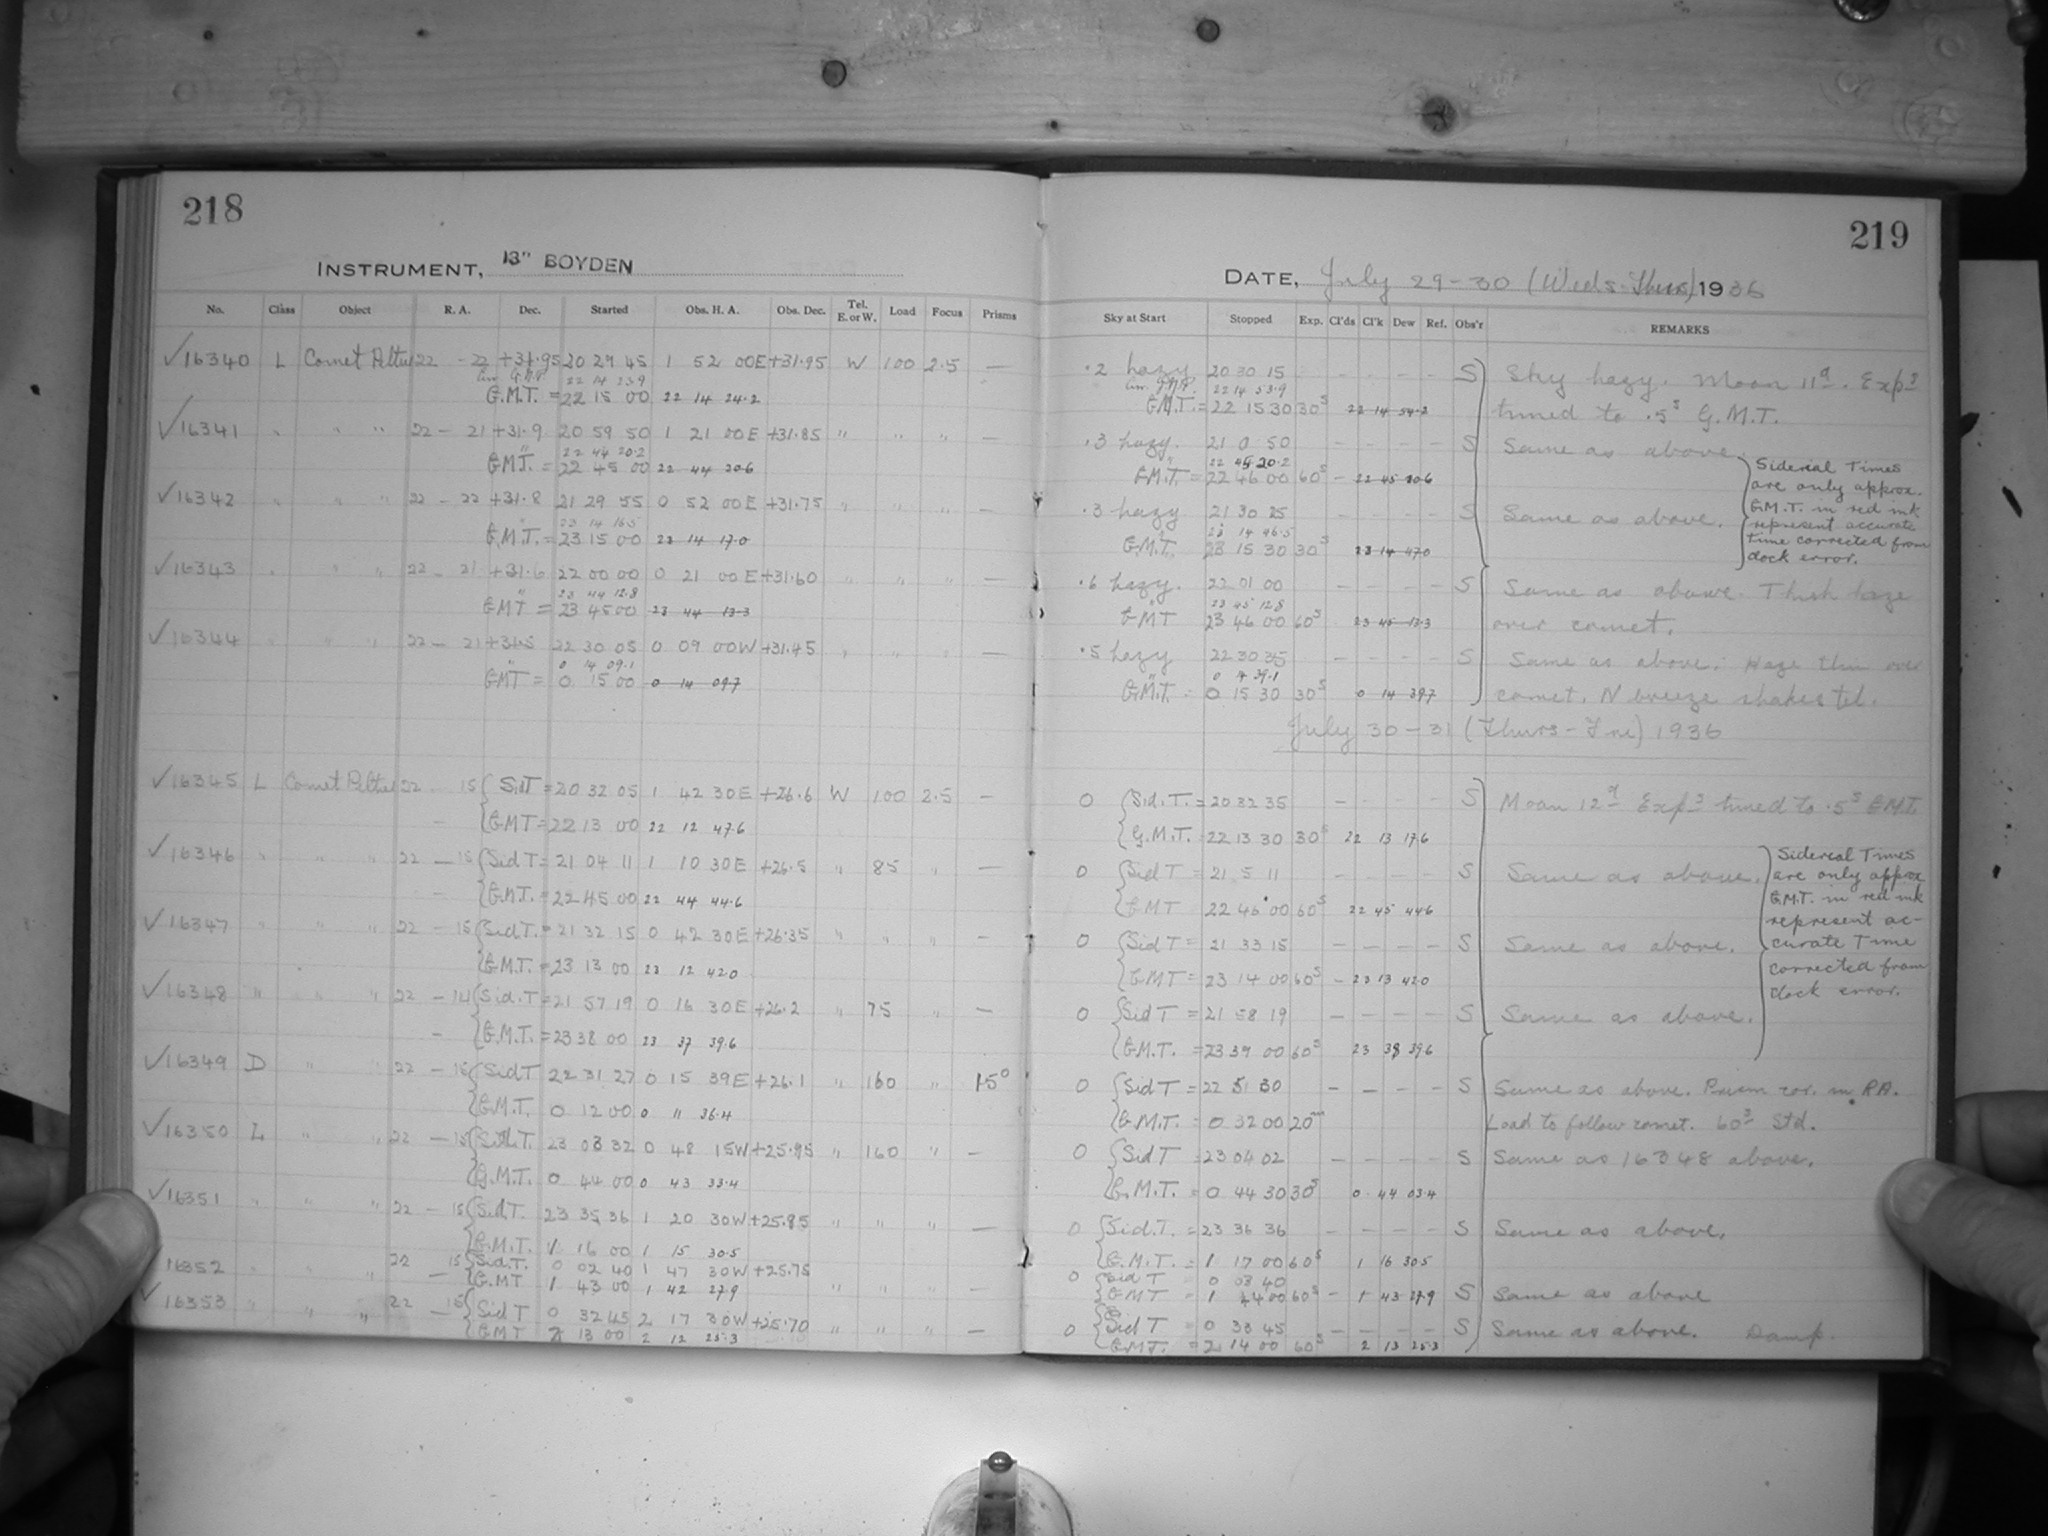 218
INSTRUMENT, 13" BOYDEN
No. Class Object R. A. Dec. Started Obs. H. A. Obs. Dec. Tel. E. or W. Load Focus Prisms
✓16340 L Comet Peltier 22 - 22 +31.95 20 29 45 1 52 00E +31.95 W 100 2.5 —
22 14 23.9
G.M.T. = 22 15 00 22 14 24.2
✓16341 " " " 22 - 21 +31.9 20 59 50 1 21 00E +31.85 " " " —
22 44 20.2
GMT. = 22 45 00 22 44 20.6
✓16342 " " " 22 - 22 +31.8 21 29 55 0 52 00E +31.75 " " " —
23 14 16.5
G.M.T. = 23 15 00 23 14 17.0
✓16343 " " " 22 - 21 +31.6 22 00 00 0 21 00E +31.60 " " " —
23 44 12.8
GMT = 23 45 00 23 44 13.3
✓16344 " " " 22 - 21 22 30 05 0 09 00W +31.45 " " " —
0 14 09.1
GMT = 0 15 00 0 14 09.7
✓16345 L Comet Peltier 22 - 15 Sid T = 20 32 05 1 42 30E +26.6 W 100 2.5 —
GMT = 22 13 00 22 12 47.6
✓16346 " " " 22 - 15 Sid T = 21 04 11 1 10 30E +26.5 " 85 " —
G.M.T. = 22 45 00 22 44 44.6
✓16347 " " " 22 - 15 Sid T. = 21 32 15 0 42 30E +26.35 " " " —
G.M.T. = 23 13 00 23 12 42.0
✓16348 " " " 22 - 14 Sid. T = 21 57 19 0 16 30E +26.2 " 75 " —
G.M.T. = 23 38 00 23 37 39.6
✓16349 D " " 22 - 15 Sid T 22 31 27 0 15 39E +26.1 " 160 " 1.5°
G.M.T. 0 12 00 0 11 36.4
✓16350 L " " 22 - 15 Sid. T. 23 03 32 0 48 15W +25.95 " 160 " —
G.M.T. 0 44 00 0 43 33.4
✓16351 " " " 22 - 15 Sid. T. 23 35 36 1 20 30W +25.85 " " " —
G.M.T. 1 16 00 1 15 30.5
16352 " " 22 - 15 Sid. T. 0 02 40 1 47 30W +25.75
G.MT 1 43 00 1 42 27.9 " " " —
✓16353 " " " 22 - 15 Sid T 0 32 45 2 17 30W +25.70 " " " —
GMT 2 13 00 2 12 25.3
219
DATE, July 29-30 (Weds-Thurs) 1936
Sky at Start Stopped Exp. Cl'ds Cl'k Dew Ref. Obs'r REMARKS
.2 hazy 20 30 15 - - - - S Sky hazy. Moon 11d. Exps
22 14 53.9
GM.T. = 22 15 30 30s 22 14 54.2 timed to .5s G.M.T.
.3 hazy. 21 0 50 - - - - S Same as above.
22 45 20.2
GM.T. = 22 46 00 60s - 22 45 20.6
Siderial Times
are only approx.
G.M.T. in red ink
represent accurate
time corrected from
clock error.
.3 hazy 21 30 25 S Same as above.
23 14 46.5
G.M.T. 23 15 30 30s 23 14 47.0
.6 hazy. 22 01 00 - - - - S Same as above. Thick haze
23 45 12.8
GMT 23 46 00 60s 23 45 13.3 over comet.
.5 hazy 22 30 35 - - - - S Same as above. Haze thin over
0 14 39.1
G.M.T. = 0 15 30 30s 0 14 39.7 comet. N breeze shakes tel.
July 30-31 (Thurs-Fri) 1936
0 Sid. T. = 20 32 35 - - - - S Moon 12d Exps timed to .5s GMT.
G.M.T. = 22 13 30 30s 22 13 17.6
0 Sid T = 21 5 11 - - - - S Same as above.
GMT 22 46 00 60s 22 45 44.6
Sidereal Times
are only approx
G.M.T. in red ink
represent ac-
curate Time
corrected from
clock error.
0 Sid T = 21 33 15 - - - - S Same as above.
GMT = 23 14 00 60s - 23 13 42.0
0 Sid T = 21 58 19 - - - - S Same as above.
G.M.T. = 23 39 00 60s 23 38 39.6
0 Sid T = 22 51 30 - - - - S Same as above. Prism cor. in RA.
G.M.T. = 0 32 00 20m Load to follow comet. 60s Std.
0 Sid T = 23 04 02 - - - - S Same as 16348 above.
G.M.T. = 0 44 30 30s 0 44 03.4
0 Sid. T. = 23 36 36 - - - - S Same as above.
G.M.T. = 1 17 00 60s 1 16 30.5
0 Sid T = 0 03 40
GMT = 1 44 00 60s - 1 43 27.9 S Same as above
0 Sid T = 0 33 45 - - - - S Same as above. Damp.
GMT. = 2 14 00 60s 2 13 25.3